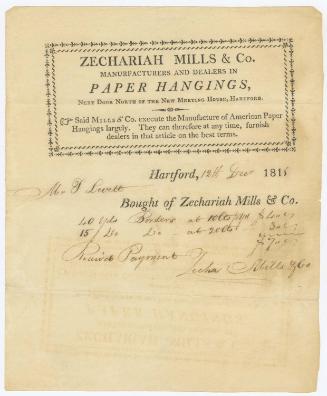 ZECHARIAH MILLS & Co.
MANUFACTURERS AND DEALERS IN
PAPER HANGINGS,
NEXT DOOR NORTH OF THE NEW MEETING HOUSE, HARTFORD.
☞ Said MILLS & Co. execute the Manufacture of American Paper
Hangings largely. They can therefore at any time, furnish
dealers in that article on the best terms.
Hartford, 12th Dec 181
Mr
Bought of Zechariah Mills & Co.
40 Yds Borders at 10cts
15 Do Do at 20cts
Received Payment
Zecha Mills & Co